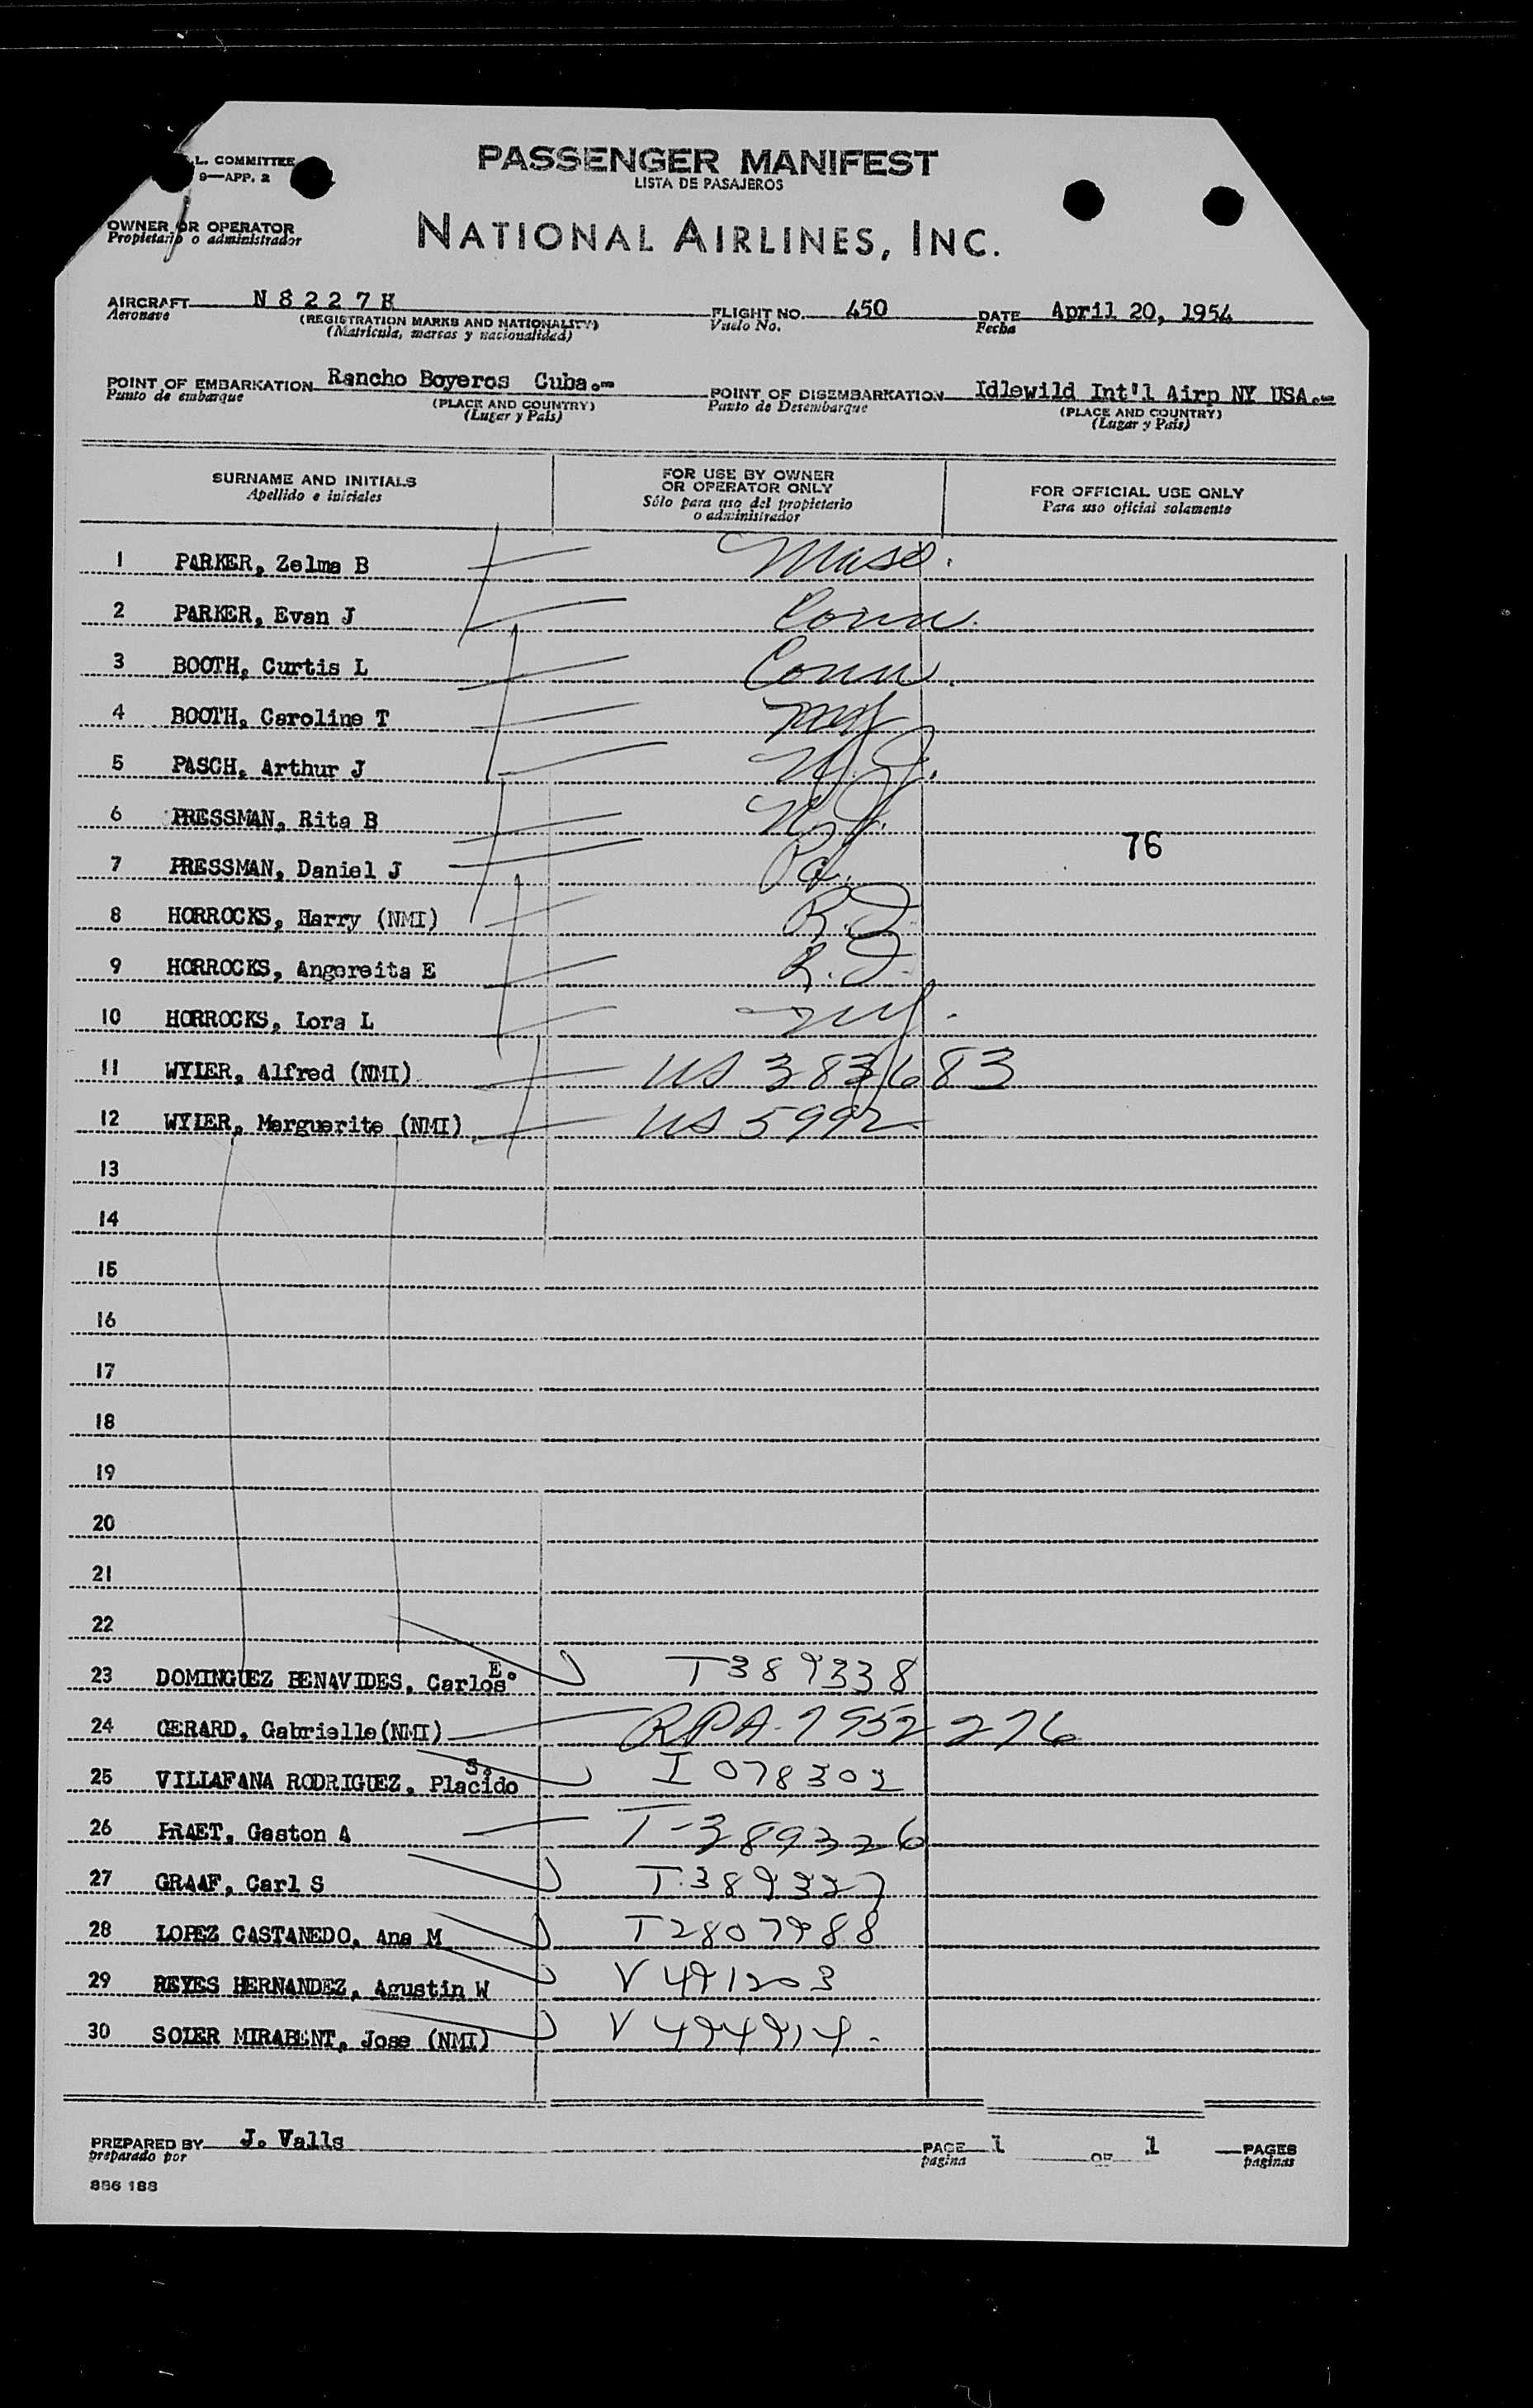 L. COMMITTEE
9—APP. 2
PASSENGER MANIFEST
LISTA DE PASAJEROS
OWNER OR OPERATOR
Propietario o administrador
NATIONAL AIRLINES, INC.
AIRCRAFT N 8 2 2 7 H FLIGHT NO. 450 DATE April 20, 1954
Aeronave (REGISTRATION MARKS AND NATIONALITY) Vuelo No. Fecha
(Matrícula, marcas y nacionalidad)
POINT OF EMBARKATION Rancho Boyeros Cuba.- POINT OF DISEMBARKATION Idlewild Int'l Airp NY USA.-
Punto de embarque (PLACE AND COUNTRY) Punto de Desembarque (PLACE AND COUNTRY)
(Lugar y País) (Lugar y País)
SURNAME AND INITIALS FOR USE BY OWNER OR OPERATOR ONLY FOR OFFICIAL USE ONLY
Apellido e iniciales Sólo para uso del propietario o administrador Para uso oficial solamente
1 PARKER, Zelma B Mass.
2 PARKER, Evan J Conn.
3 BOOTH, Curtis L Conn.
4 BOOTH, Caroline T NY
5 PASCH, Arthur J N.J.
6 PRESSMAN, Rita B N.J.
76
7 PRESSMAN, Daniel J Pa.
8 HORROCKS, Harry (NMI) R.I.
9 HORROCKS, Angoreita E R.I.
10 HORROCKS, Lora L NY.
11 WYLER, Alfred (NMI) US 383683
12 WYLER, Marguerite (NMI) US 5992
13
14
15
16
17
18
19
20
21
22
23 DOMINGUEZ BENAVIDES, Carlos E. T389338
24 GERARD, Gabrielle(NMI) RPA-7952276
25 VILLAFANA RODRIGUEZ, Placido S. I 078302
26 PRAET, Gaston A T-389326
27 GRAAF, Carl S T.389327
28 LOPEZ CASTANEDO, Ana M T2807988
29 REYES HERNANDEZ, Agustin W V 491203
30 SOLER MIRABENT, Jose (NMI)
PREPARED BY J. Valls PAGE 1 OF 1 PAGES
preparado por pagina paginas
886 188